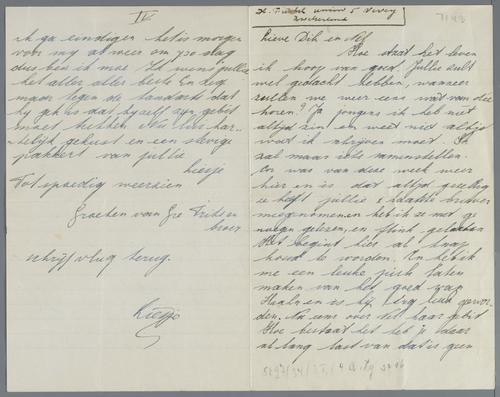 IV
ik ga eindigen het is morgen
voor mij al weer om 7.30 dag
dus ben ik moe. Ik wens jullie
het aller aller beste En zeg
maar tegen de tandarts dat
hij gek is dat hij zelf zijn gebit
moet trekken. Nu dus har-
telijk gekust en een stevige
pakkert van jullie
Liesje
Tot spoedig weerzien
Groeten van Gre Frits en
broer
schrijf vlug terug.
Liesje
Vevey
Zwitserland
Lieve Dik en Alf
Hoe staat het leven
ik hoop van goed. Jullie zult
wel gedacht hebben, wanneer
zullen we weer eens wat van die
horen? Ja jongens ik heb niet
altijd zin en weet niet altijd
wat ik schrijven moet. Ik
zal maar iets samenstellen.
Er was van deze week meer
hier en is dat altijd gezellig
heeft jullie laatste brieven
meegenomen en heb ik ze met ge-
noegen gelezen, en flink gelachen
Het begint hier al knap
koud te worden. En heb ik
me een leuke jurk laten
maken van het goed van
en is hij erg leuk gewor-
den. Nu eens over het haar gebit
Hoe bestaat het heb je daar
al lang last van dat is geen